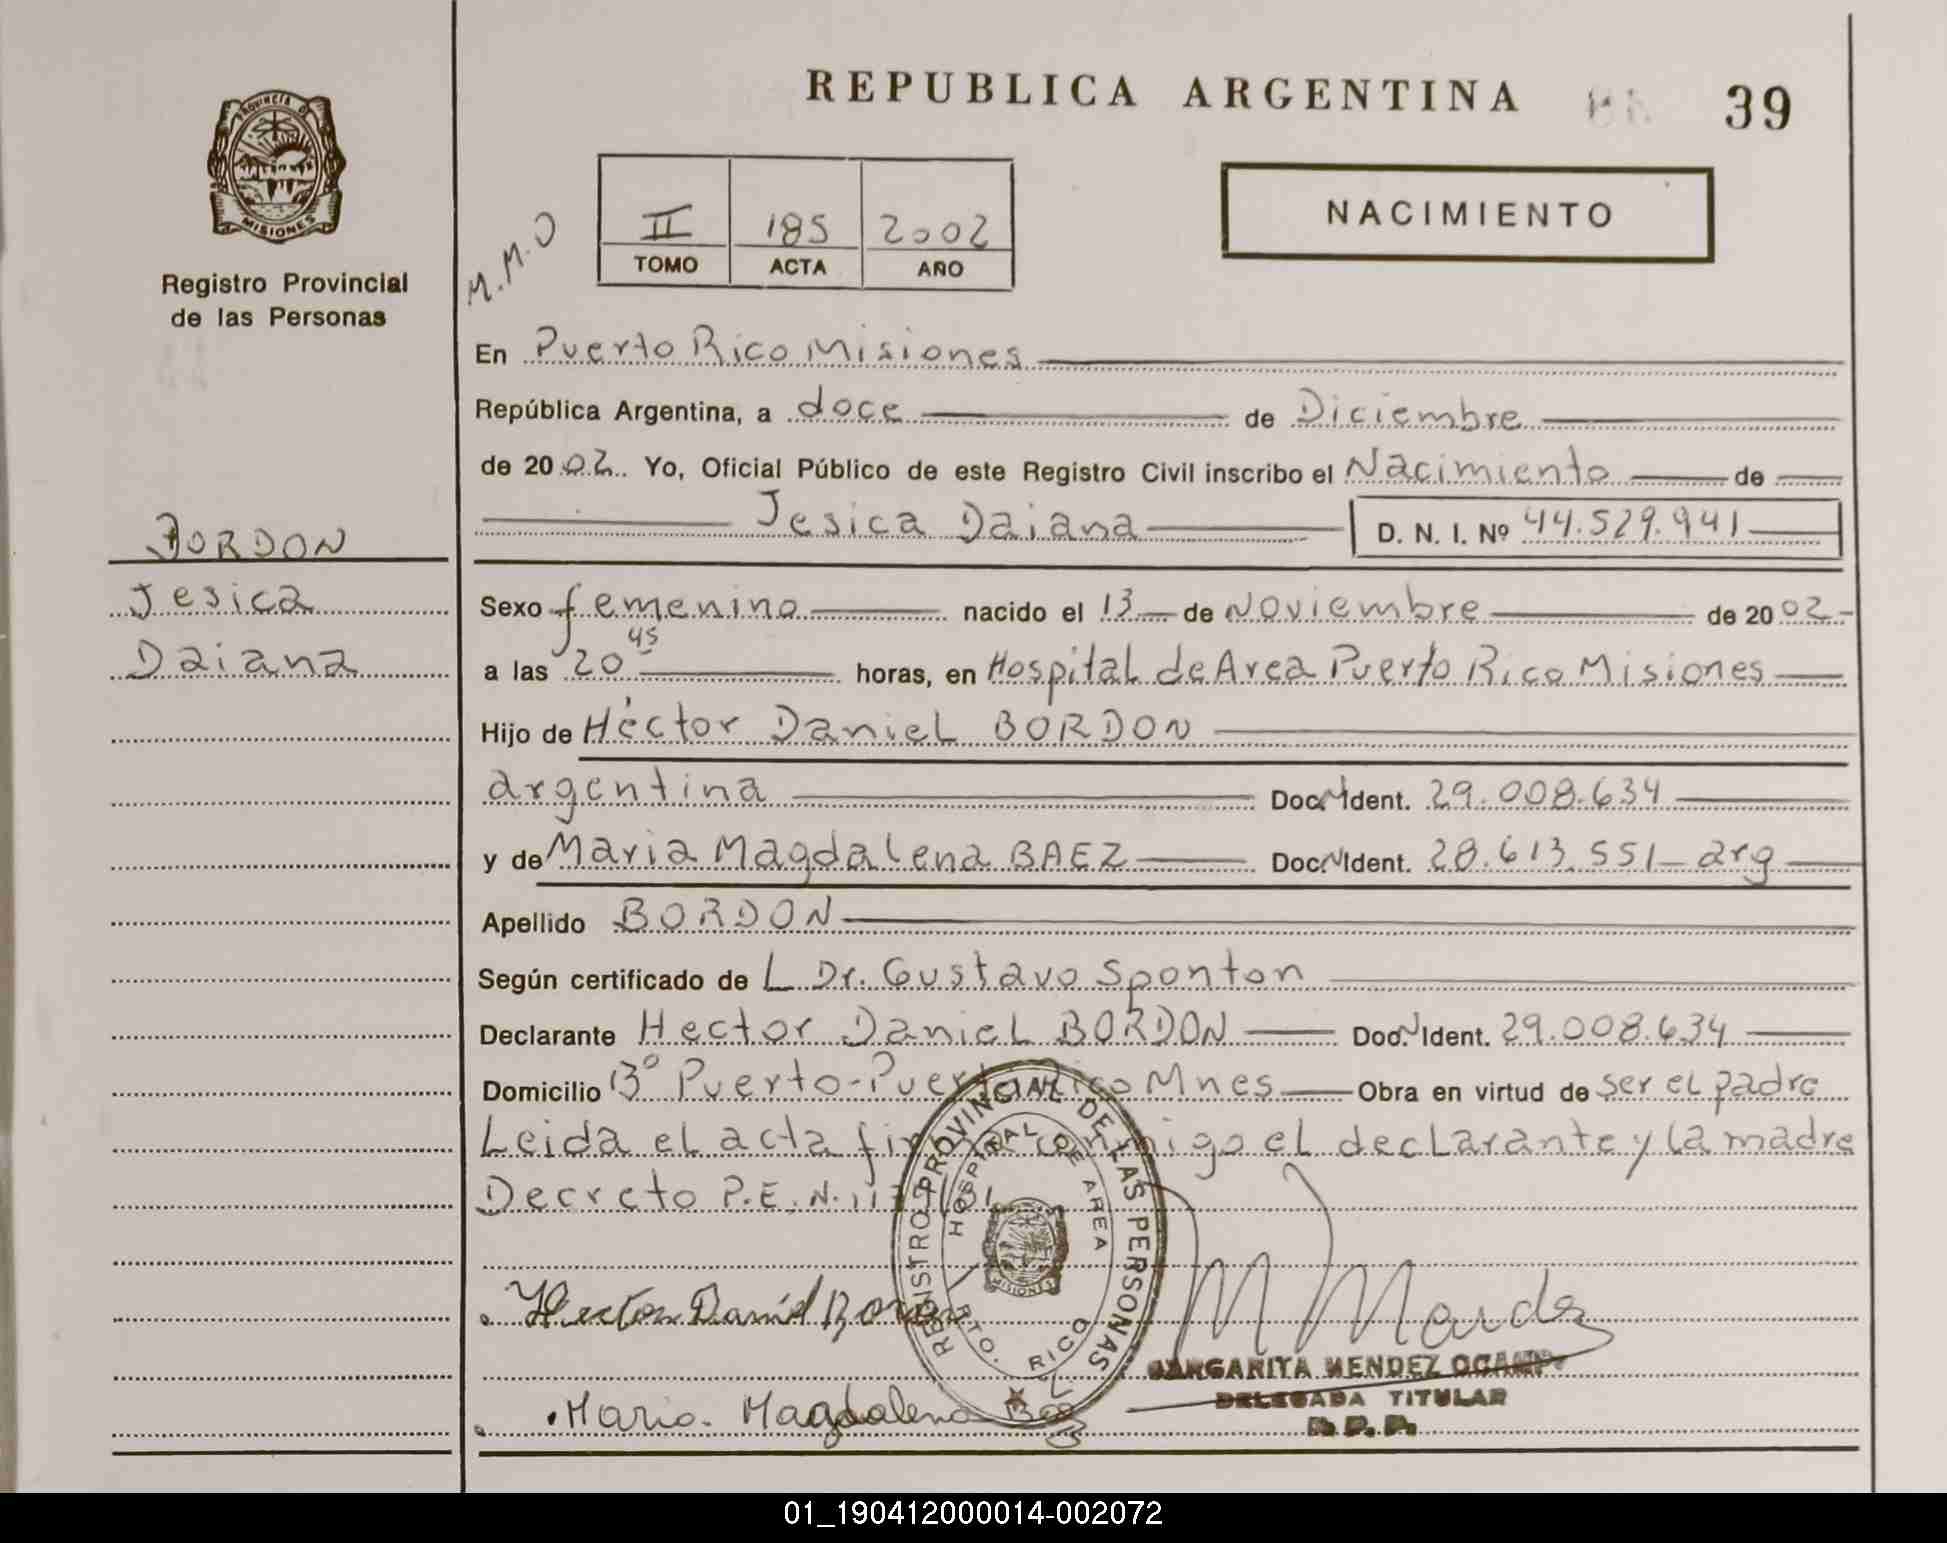 REPUBLICA ARGENTINA 39
PROVINCIA DE
MISIONES
Registro Provincial
de las Personas
M.M.O
II 185 2002
TOMO ACTA AÑO
NACIMIENTO
En Puerto Rico Misiones
República Argentina, a doce de Diciembre
de 2002 Yo, Oficial Público de este Registro Civil inscribo el Nacimiento de
Jesica Daiana D. N. I. Nº 44.529.941
BORDON
Jesica
Daiana
Sexo femenino nacido el 13 de Noviembre de 2002
a las 20 45 horas, en Hospital de Area Puerto Rico Misiones
Hijo de Héctor Daniel BORDON
argentina Doc. N Ident. 29.008.634
y de Maria Magdalena BAEZ Doc. N Ident. 28.613.551 arg
Apellido BORDON
Según certificado de L Dr. Gustavo Sponton
Declarante Hector Daniel BORDON Doc. N Ident. 29.008.634
Domicilio 13º Puerto-Puerto Rico Mnes Obra en virtud de ser el padre
Leida el acta firma conmigo el declarante y la madre
Decreto P.E.N.
REGISTRO PROVINCIAL DE LAS PERSONAS
HOSPITAL DE AREA
MISIONES
PTO. RICO
Hector Daniel Bordon
M Mendez
MARGARITA MENDEZ OCAMPO
DELEGADA TITULAR
R.P.P.
Maria Magdalena Baez
01_190412000014-002072